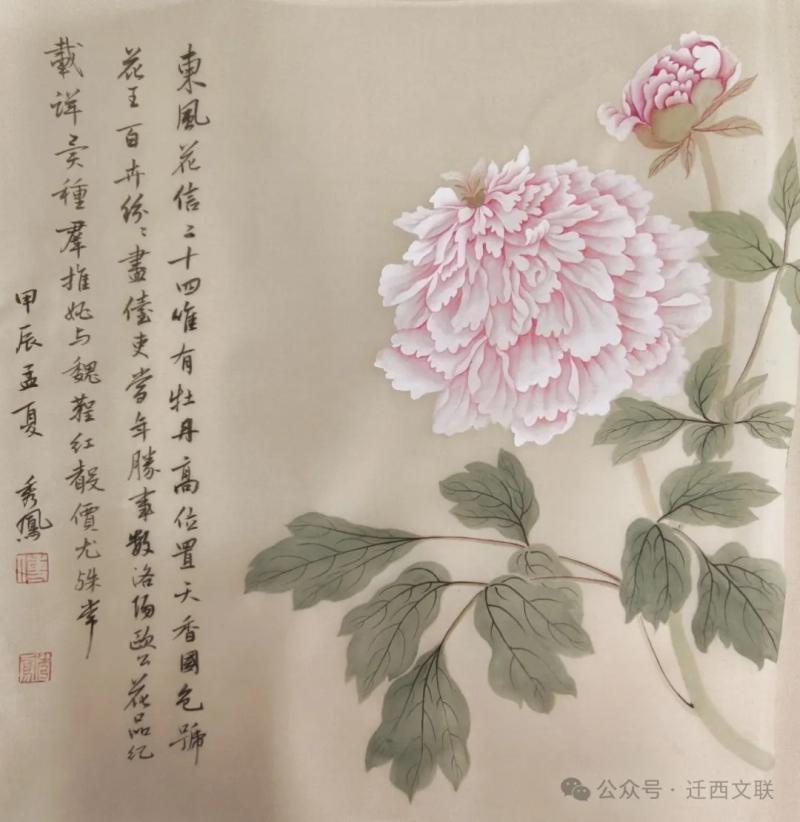 東風花信二十四唯有牡丹高位置天香國色號
花王百卉紛〻盡儓吏當年勝事數洛陽歐公花品紀
載詳異種羣推姚与魏鞓红價尤殊
甲辰孟夏 秀鳳
秀鳳
公众号·迁西文联